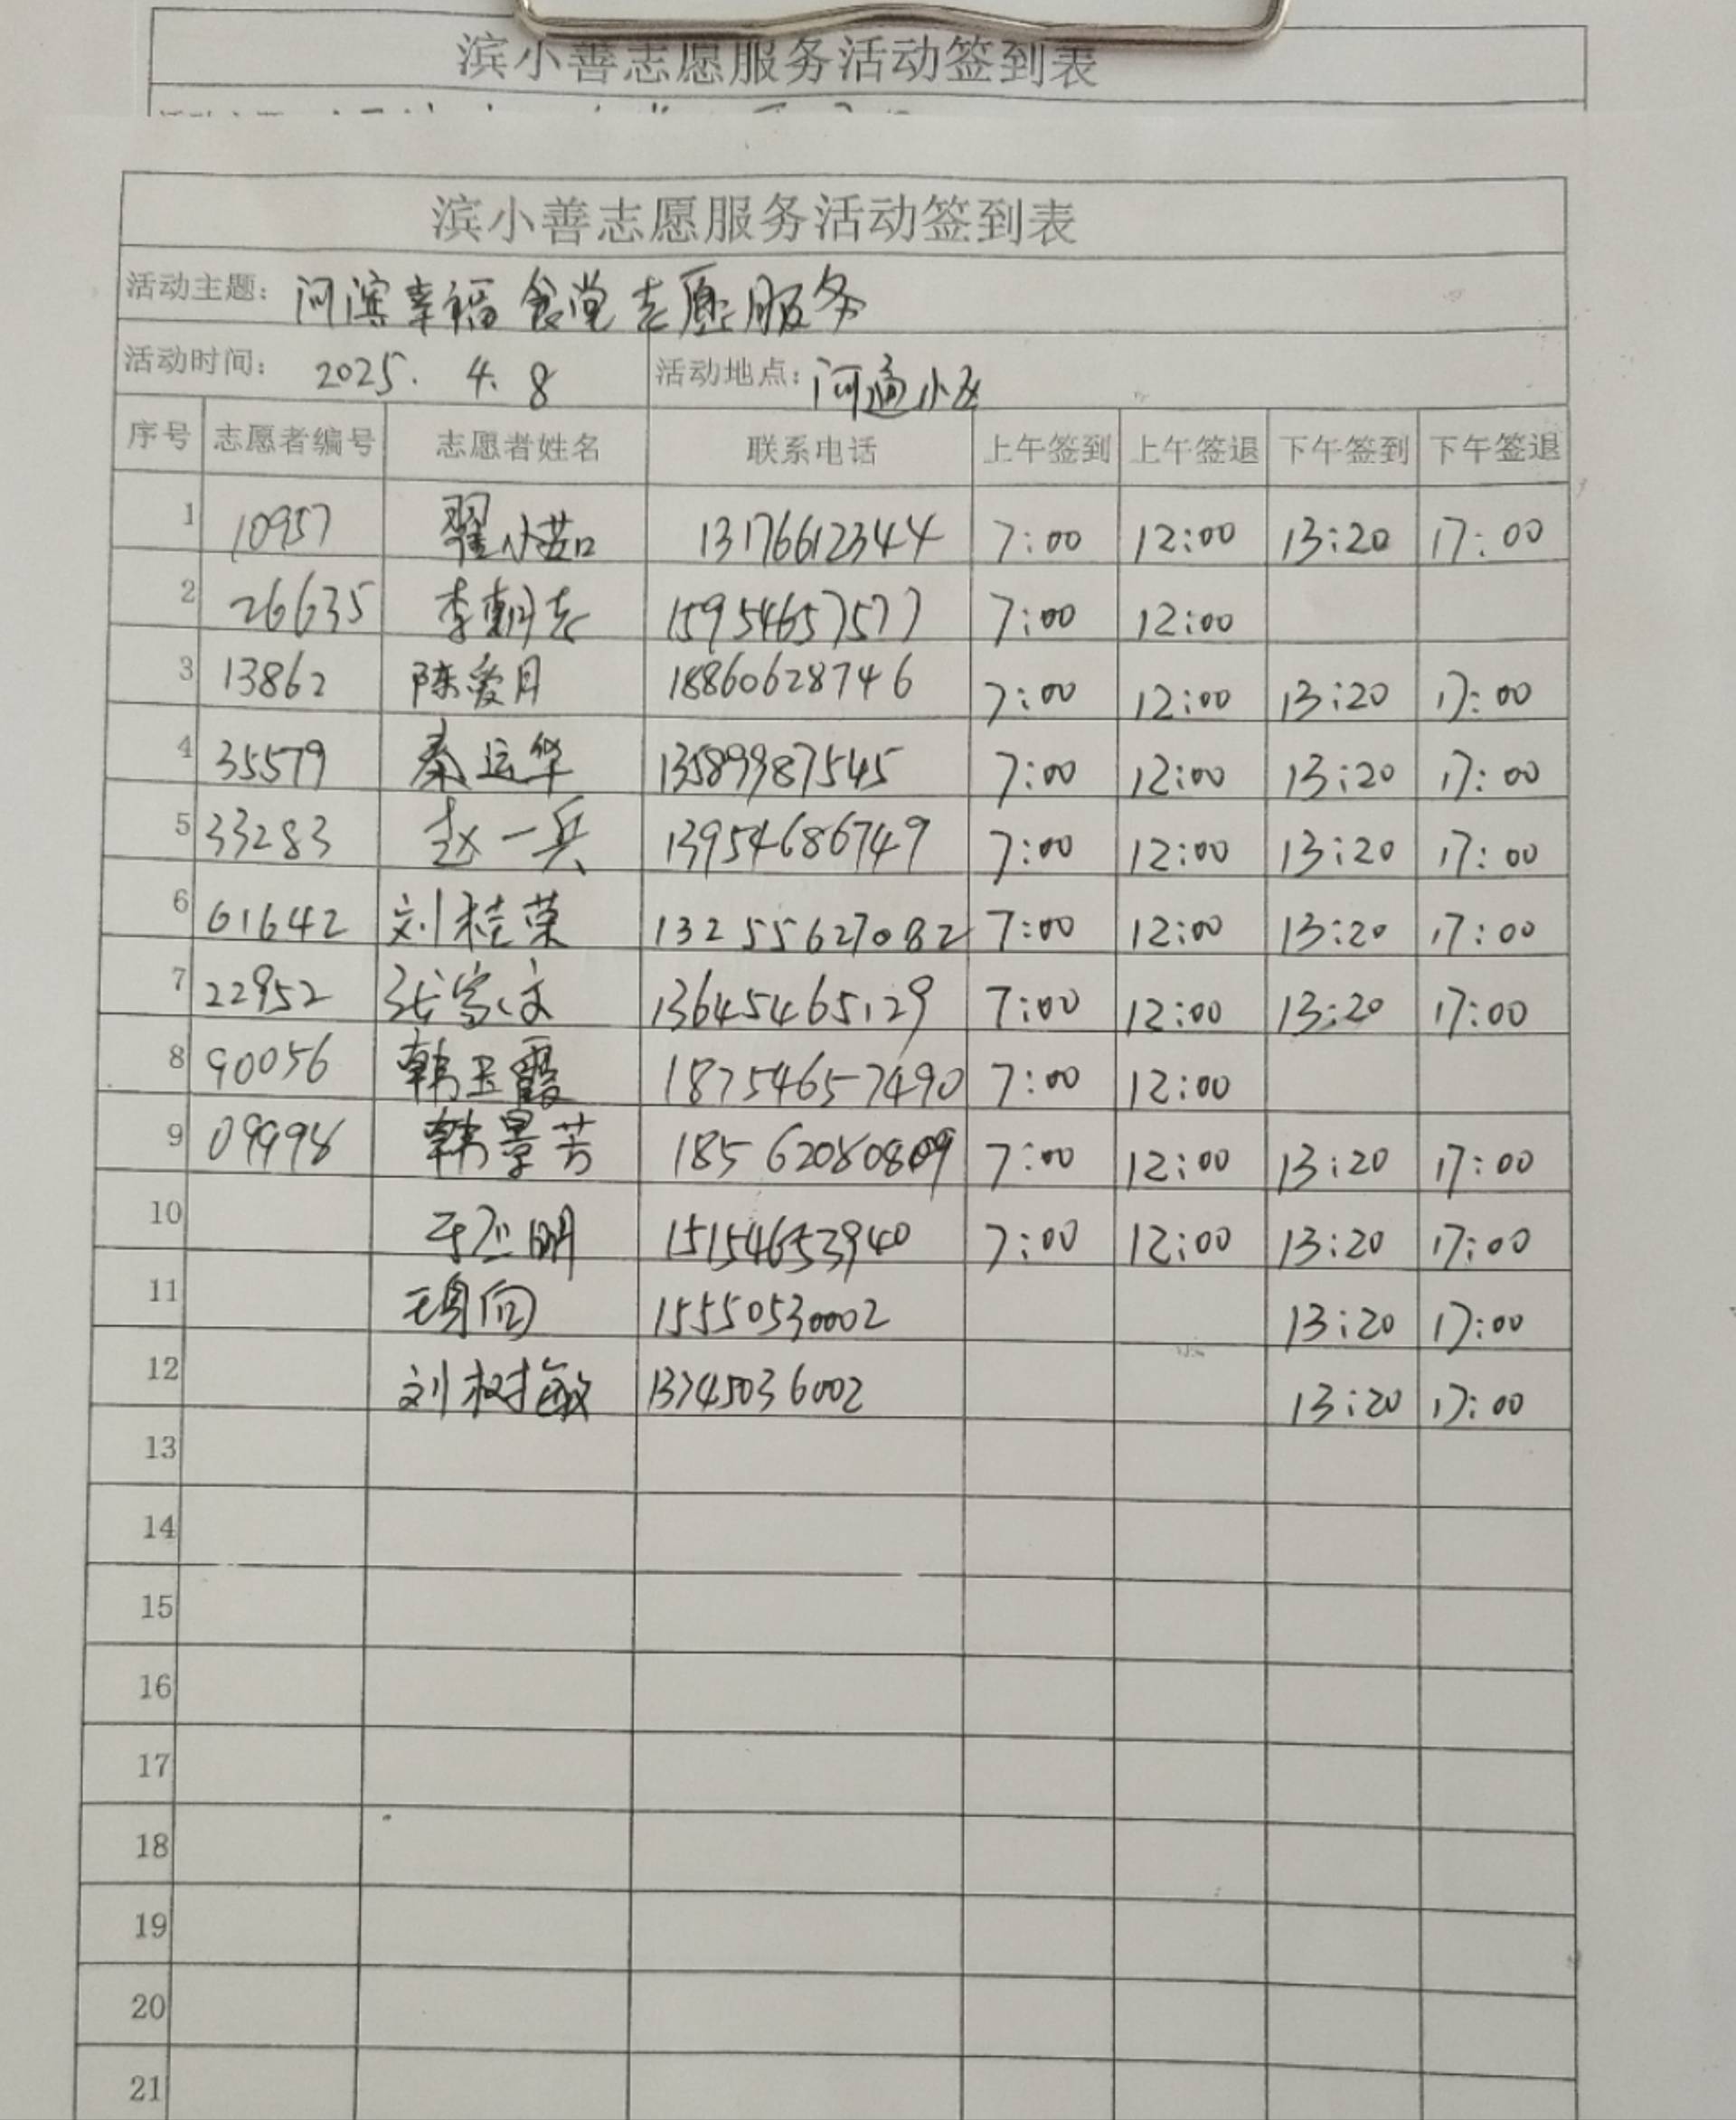 滨小善志愿服务活动签到表
滨小善志愿服务活动签到表
活动主题: 河滨幸福食堂志愿服务
活动时间: 2025. 4. 8 活动地点: 河通小区
序号 志愿者编号 志愿者姓名 联系电话 上午签到 上午签退 下午签到 下午签退
1 10957 翟小茹 13176612344 7:00 12:00 13:20 17:00
2 26635 李朝志 15954657577 7:00 12:00
3 13862 陈爱月 18860628746 7:00 12:00 13:20 17:00
4 35579 秦运华 13589987545 7:00 12:00 13:20 17:00
5 33283 赵一兵 13954686749 7:00 12:00 13:20 17:00
6 61642 刘桂荣 13255627082 7:00 12:00 13:20 17:00
7 22952 张家文 13645465129 7:00 12:00 13:20 17:00
8 90056 韩玉霞 18754657490 7:00 12:00
9 09998 韩景芳 18562080809 7:00 12:00 13:20 17:00
10 15154653940 7:00 12:00 13:20 17:00
11 15550530002 13:20 17:00
12 刘树敏 13745036002 13:20 17:00
13
14
15
16
17
18
19
20
21